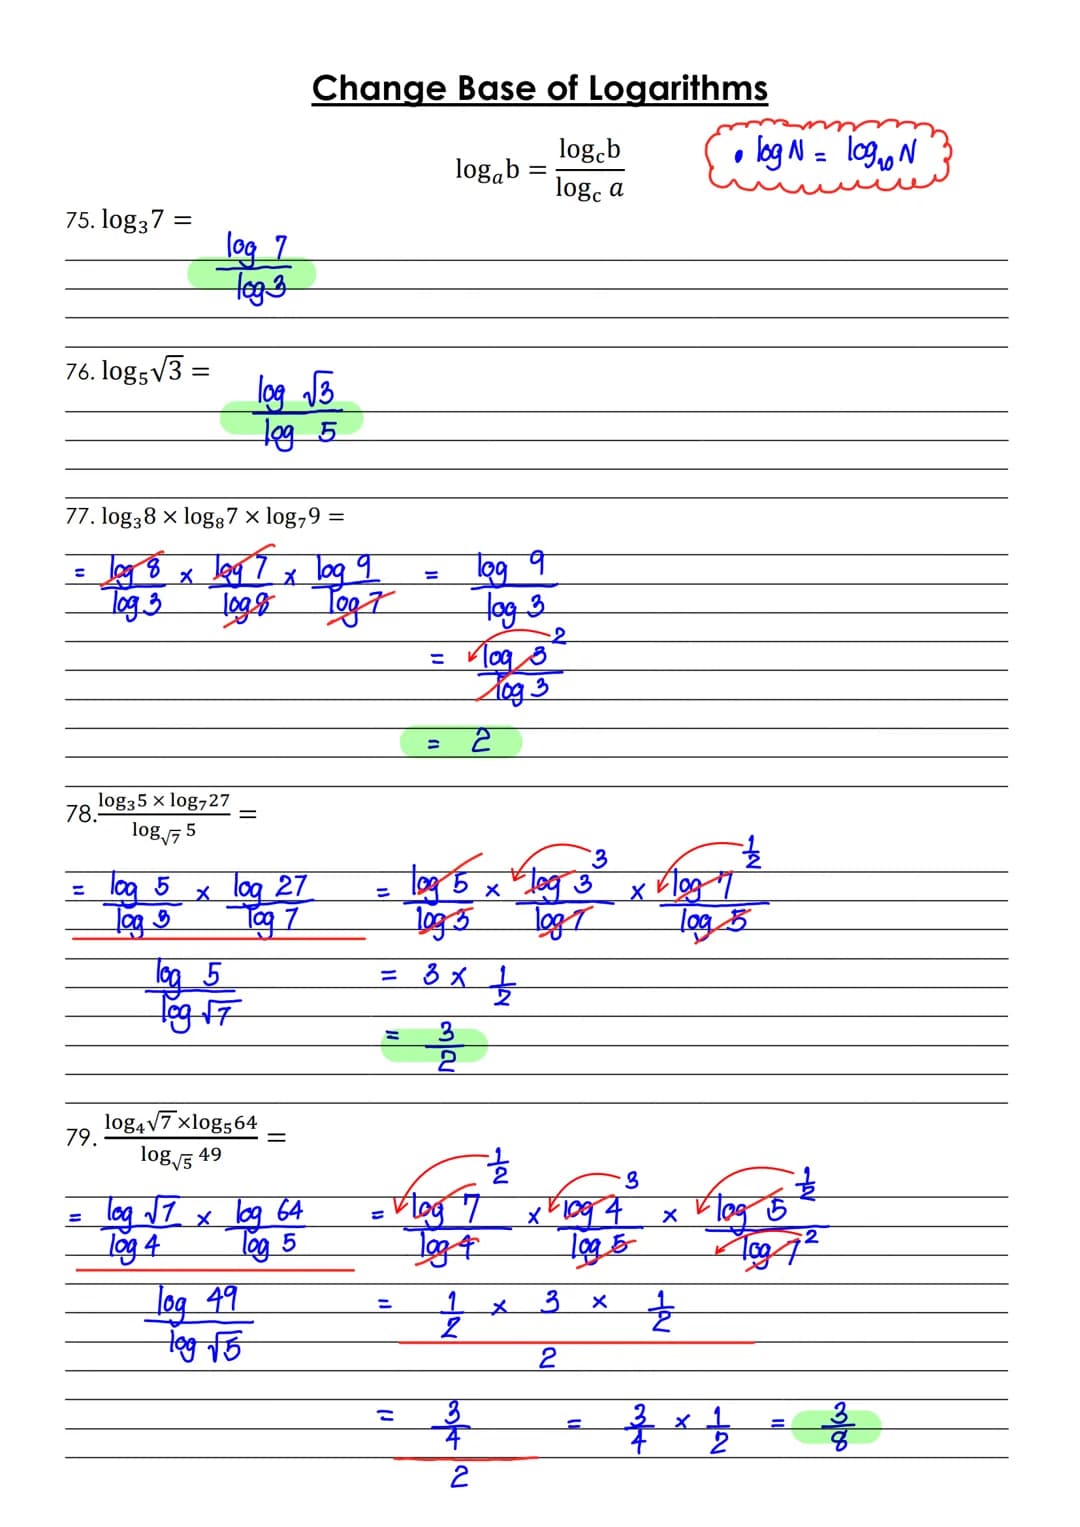 Change Base of Logarithms
logₐb = log_c b / log_c a
• log N = log₁₀ N
75. log₃7 =
log 7 / log 3
76. log₅√3 =
log √3 / log 5
77. log₃8 × log₈7 × log₇9 =
= log 8 / log 3 × log 7 / log 8 × log 9 / log 7 = log 9 / log 3
= log 3² / log 3
= 2
78. log₃5 × log₇27 / log_√7 5 =
= (log 5 / log 3 × log 27 / log 7) / (log 5 / log √7) = log 5 / log 3 × log 3³ / log 7 × log 7^½ / log 5
= 3 × 1/2
= 3/2
79. log₄√7 × log₅64 / log_√5 49 =
= (log √7 / log 4 × log 64 / log 5) / (log 49 / log √5) = log 7^½ / log 4 × log 4³ / log 5 × log 5^½ / log 7²
= (1/2 × 3 × 1/2) / 2
= (3/4) / 2 = 3/4 × 1/2 = 3/8